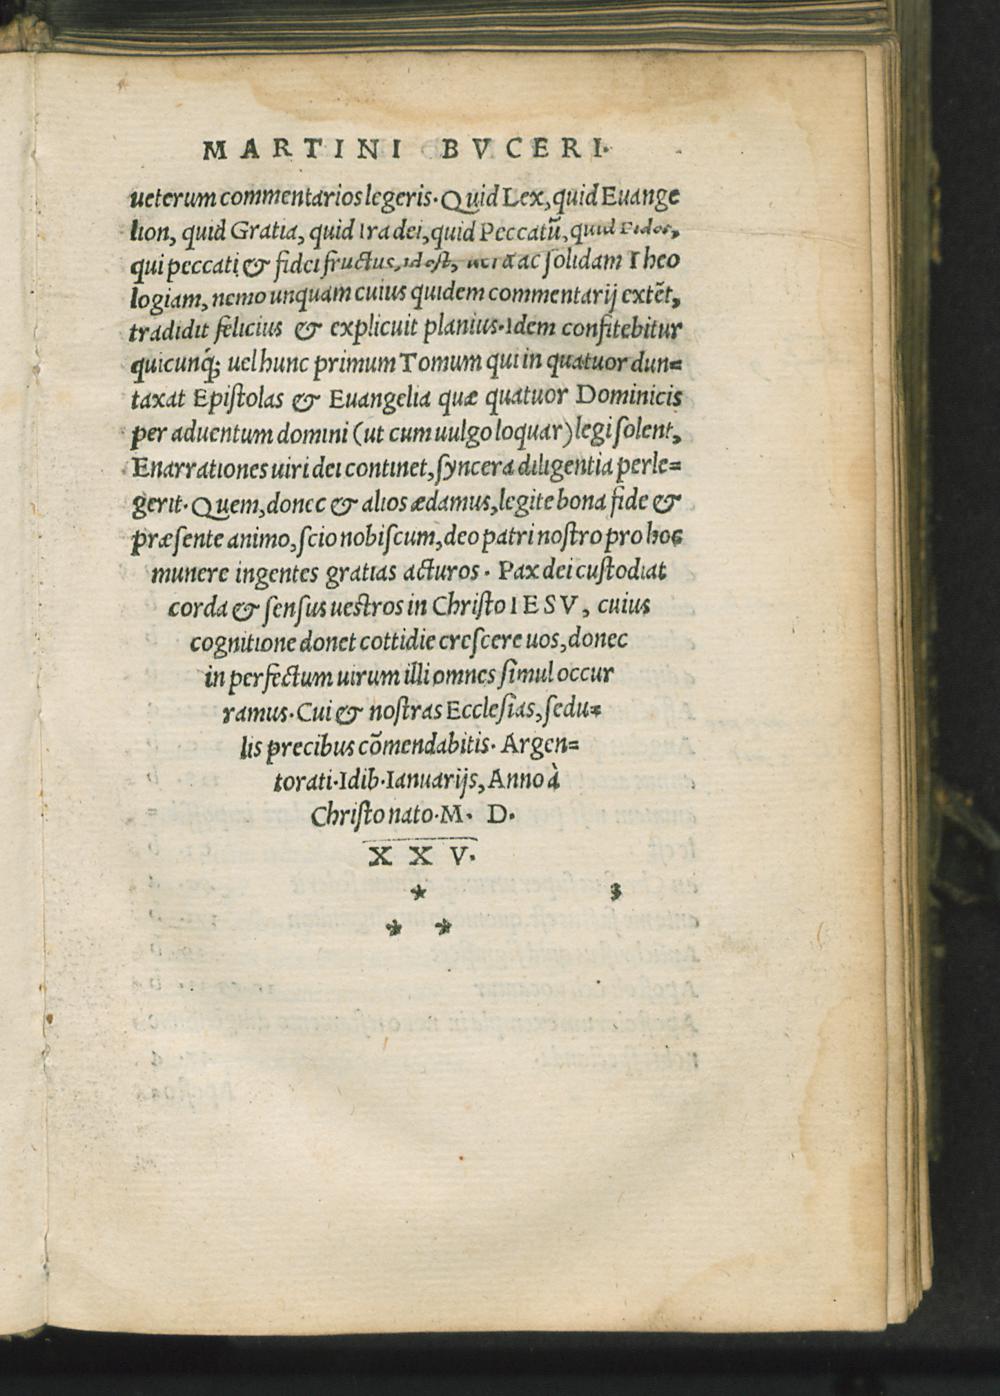 MARTINI BVCERI.
ueterum commentarios legeris. Quid Lex, quid Euange
lion, quid Gratia, quid Ira dei, quid Peccatũ, quid Fides,
qui peccati & fidei fructus, id est, uera ac solidam Theo
logiam, nemo unquam cuius quidem commentarij extẽt,
tradidit felicius & explicuit planius. Idem confitebitur
quicunq́; uel hunc primum Tomum qui in quatuor dun=
taxat Epistolas & Euangelia quæ quatuor Dominicis
per aduentum domini (ut cum uulgo loquar) legi solent,
Enarrationes uiri dei continet, syncera diligentia perle=
gerit. Quem, donec & alios ædamus, legite bona fide &
præsente animo, scio nobiscum, deo patri nostro pro hoc
munere ingentes gratias acturos. Pax dei custodiat
corda & sensus uestros in Christo IESV, cuius
cognitione donet cottidie crescere uos, donec
in perfectum uirum illi omnes simul occur
ramus. Cui & nostras Ecclesias, sedu=
lis precibus cõmendabitis. Argen=
torati. Idib. Ianuarijs, Anno à
Christo nato. M. D.
XXV.
*
* *